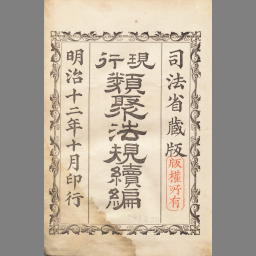 司法省蔵版
版權所有
現行
類聚法規續編
明治十二年十月印行